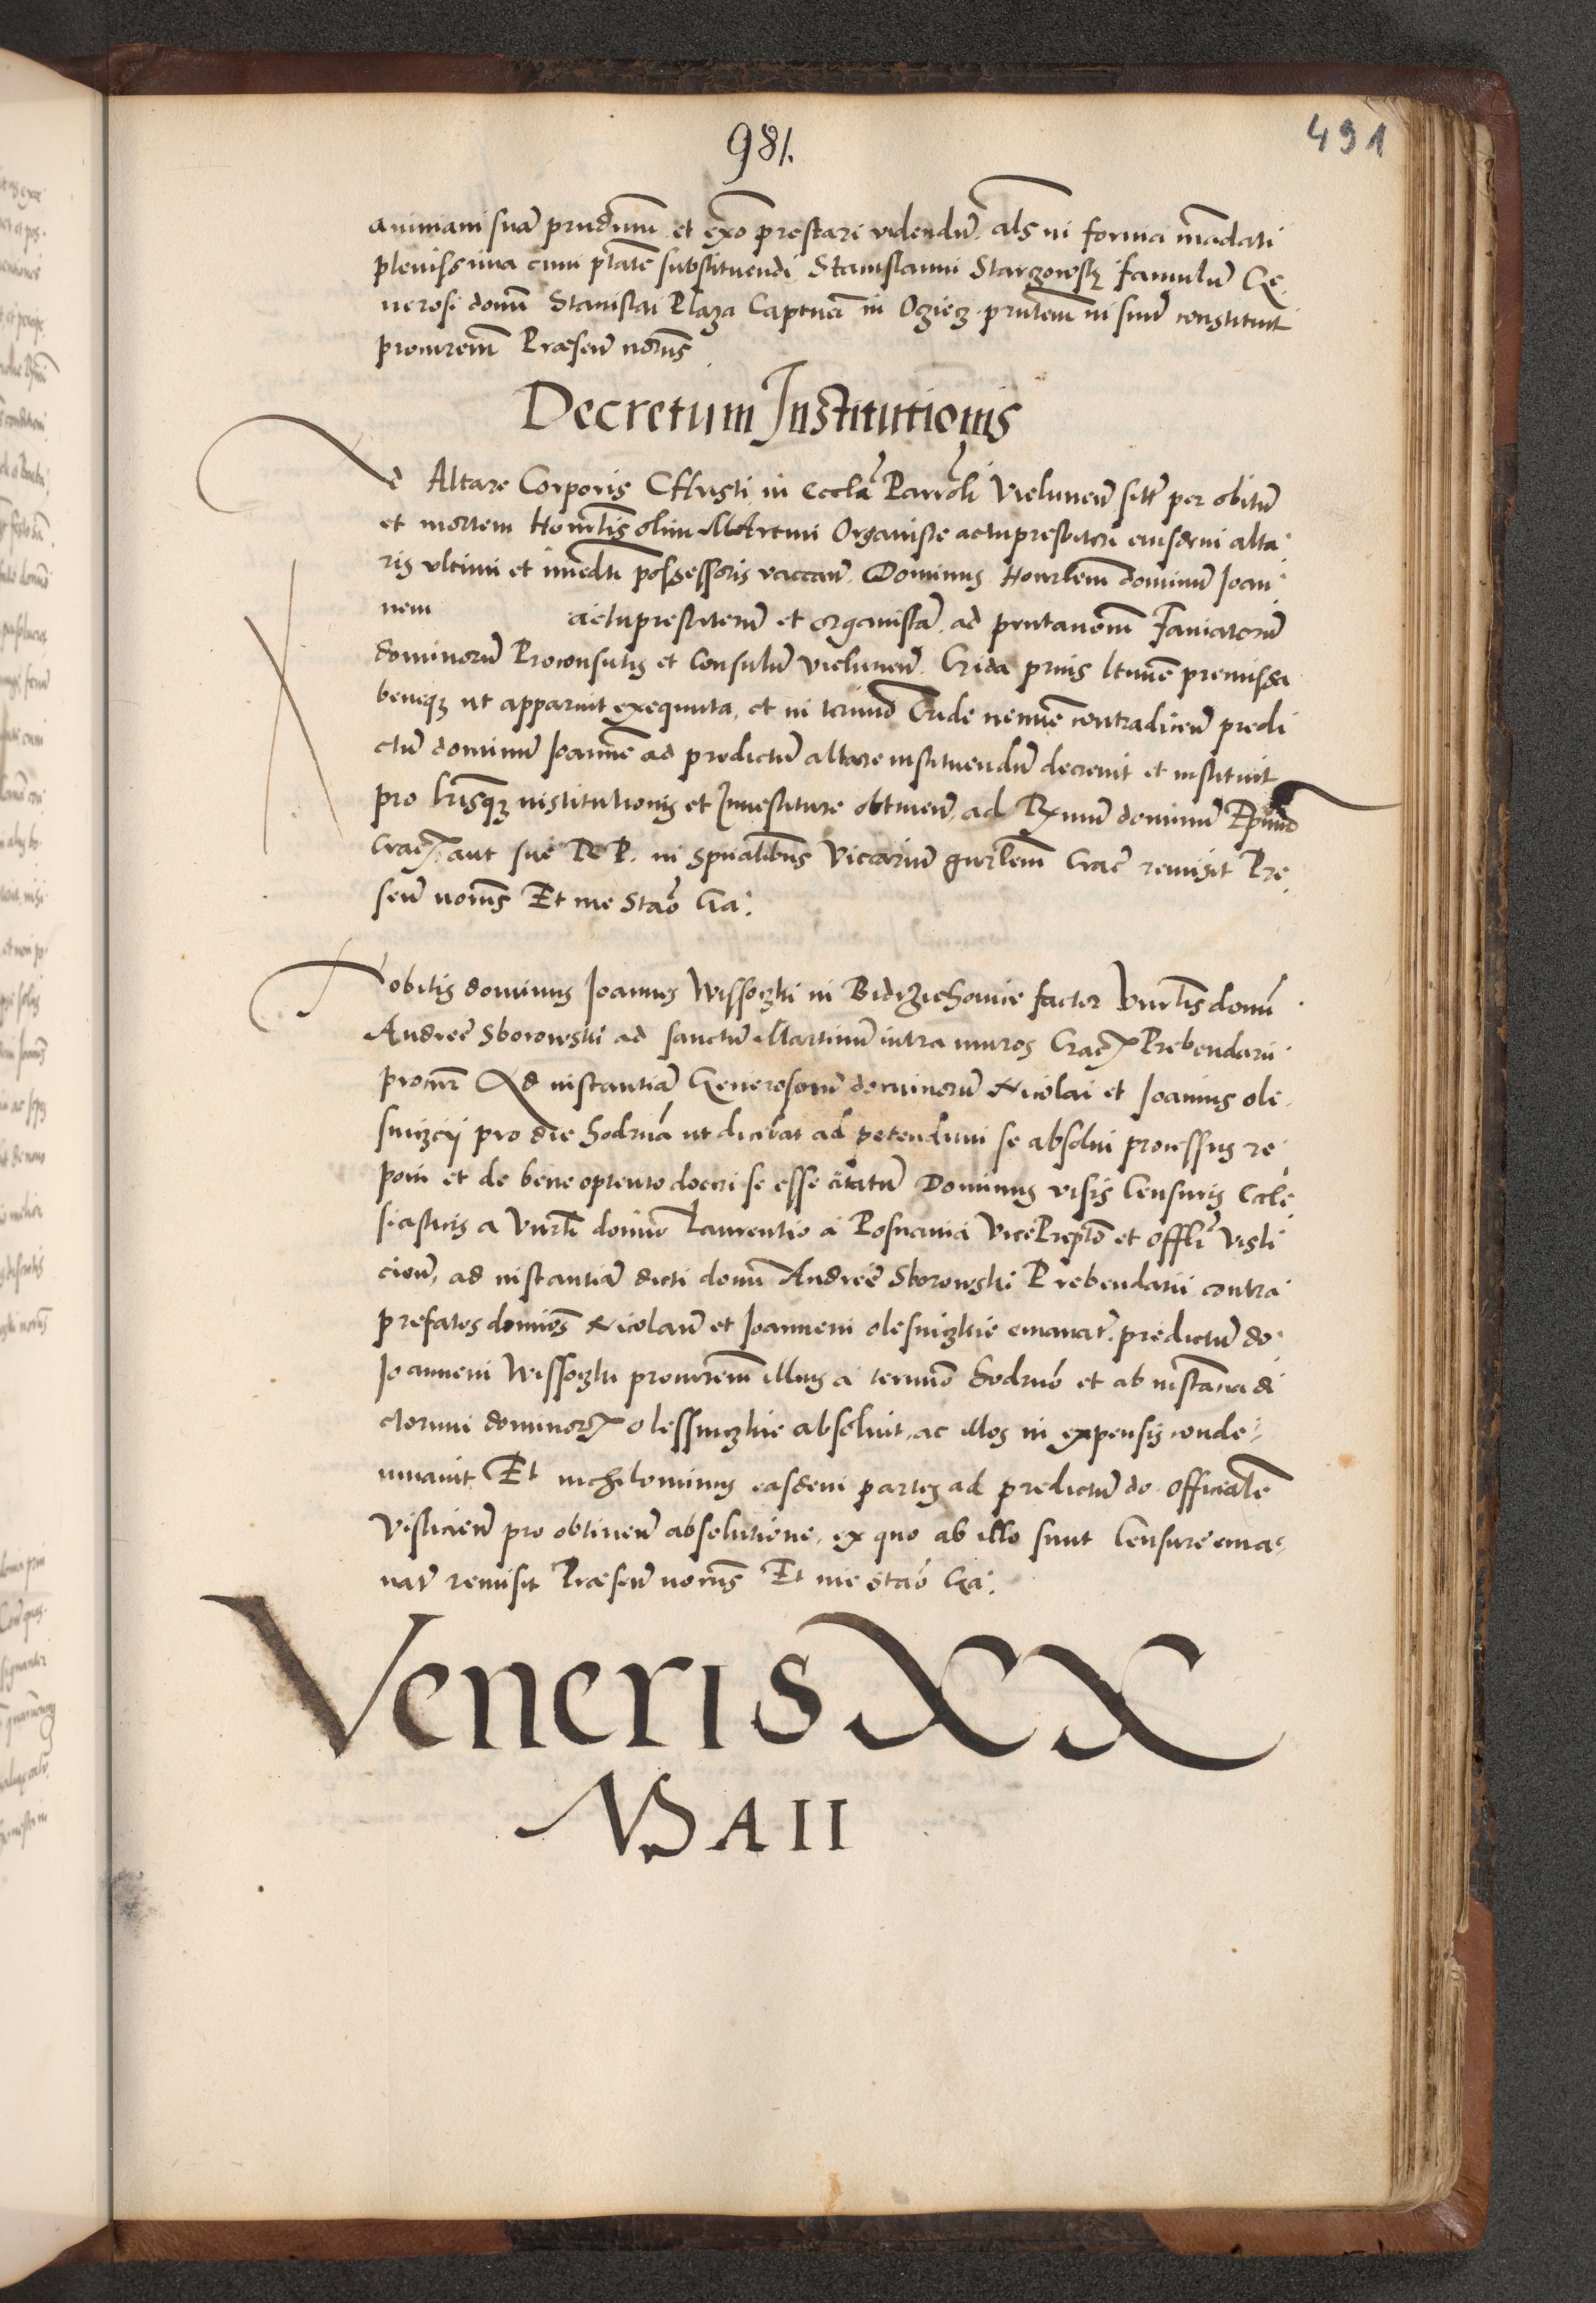 981.
491
animam suã prudũm et exõ prestari videndũ als in forma mãdati
plenissima cum ptãte substituendi Stanislaum Stargowsk famulũ Ge
nerosi domĩ Stanislai Plaza Captneĩ in Ogieg pntem in suũ constituit
procurem Præsen norũs
Decretum Institutionis
Ad Altare Corporis CHristi in eccla Parroli Vielunen sitũ per obitũ
et mortem Honorlis olim MArtini Organiste actu presbiteri eiusdem alta
ris ultimi et imedti possessoris vaccan Dominus Honorlem dominũ Joan
nem actu presbiterũ et organistã ad pntanonem Famatorũ
dominorũ Proconsulis et Consulũ vielunen Crida prius ltime premissa
beneqz ut apparuit exequuta, et in termino Cride nemie contradicen predi
ctũ dominũ Joannẽ ad predictũ altare instituendũ decrevit et instituit
pro lrisqz institutionis et Investiture obtinen, ad Rxmũ dominũ Epum
Crac. aut sue R P. in spualibus Vicarium gnrlem Crac remisit Pre
sen norũs Et me Stão Ga.
Nobilis dominus Joannes Wissoczki in Bidrzichowice factor Vnrlis domĩ
Andreẽ Sborowski ad sanctũ Martinũ intra muros Crac Prebendarii
procur Ad instantiã Generosorũ dominorũ Nicolai et Joannis ole
sniczcij pro die hodrna ut dicebat ad petendum se absolvi processus re
poni et de bene optento doceri se esse citatũ Dominus visis Censuris Eccle
siasticis a Vnrli domino Laurentio a Posnania VicePrepto et offli Visli
cien, ad instantiã dicti domĩ Andreẽ Sborowski Prebendarii contra
prefatos domios Nicolaũ et Joannem olesniczkie emanat. predictũ do
Joannem Wissoczki procurem illius a termino hodrno et ab instãcia di
ctorum dominor olessniczkie absolvit, ac illos in expensis conde
mnavit Et nichilominus easdem partes ad predictũ do officialẽ
Vislicien pro obtinen absolutione, ex quo ab illo sunt Censure ema
nat remisit Præsen norũs Et me stão Ga.
Veneris XX
MAII